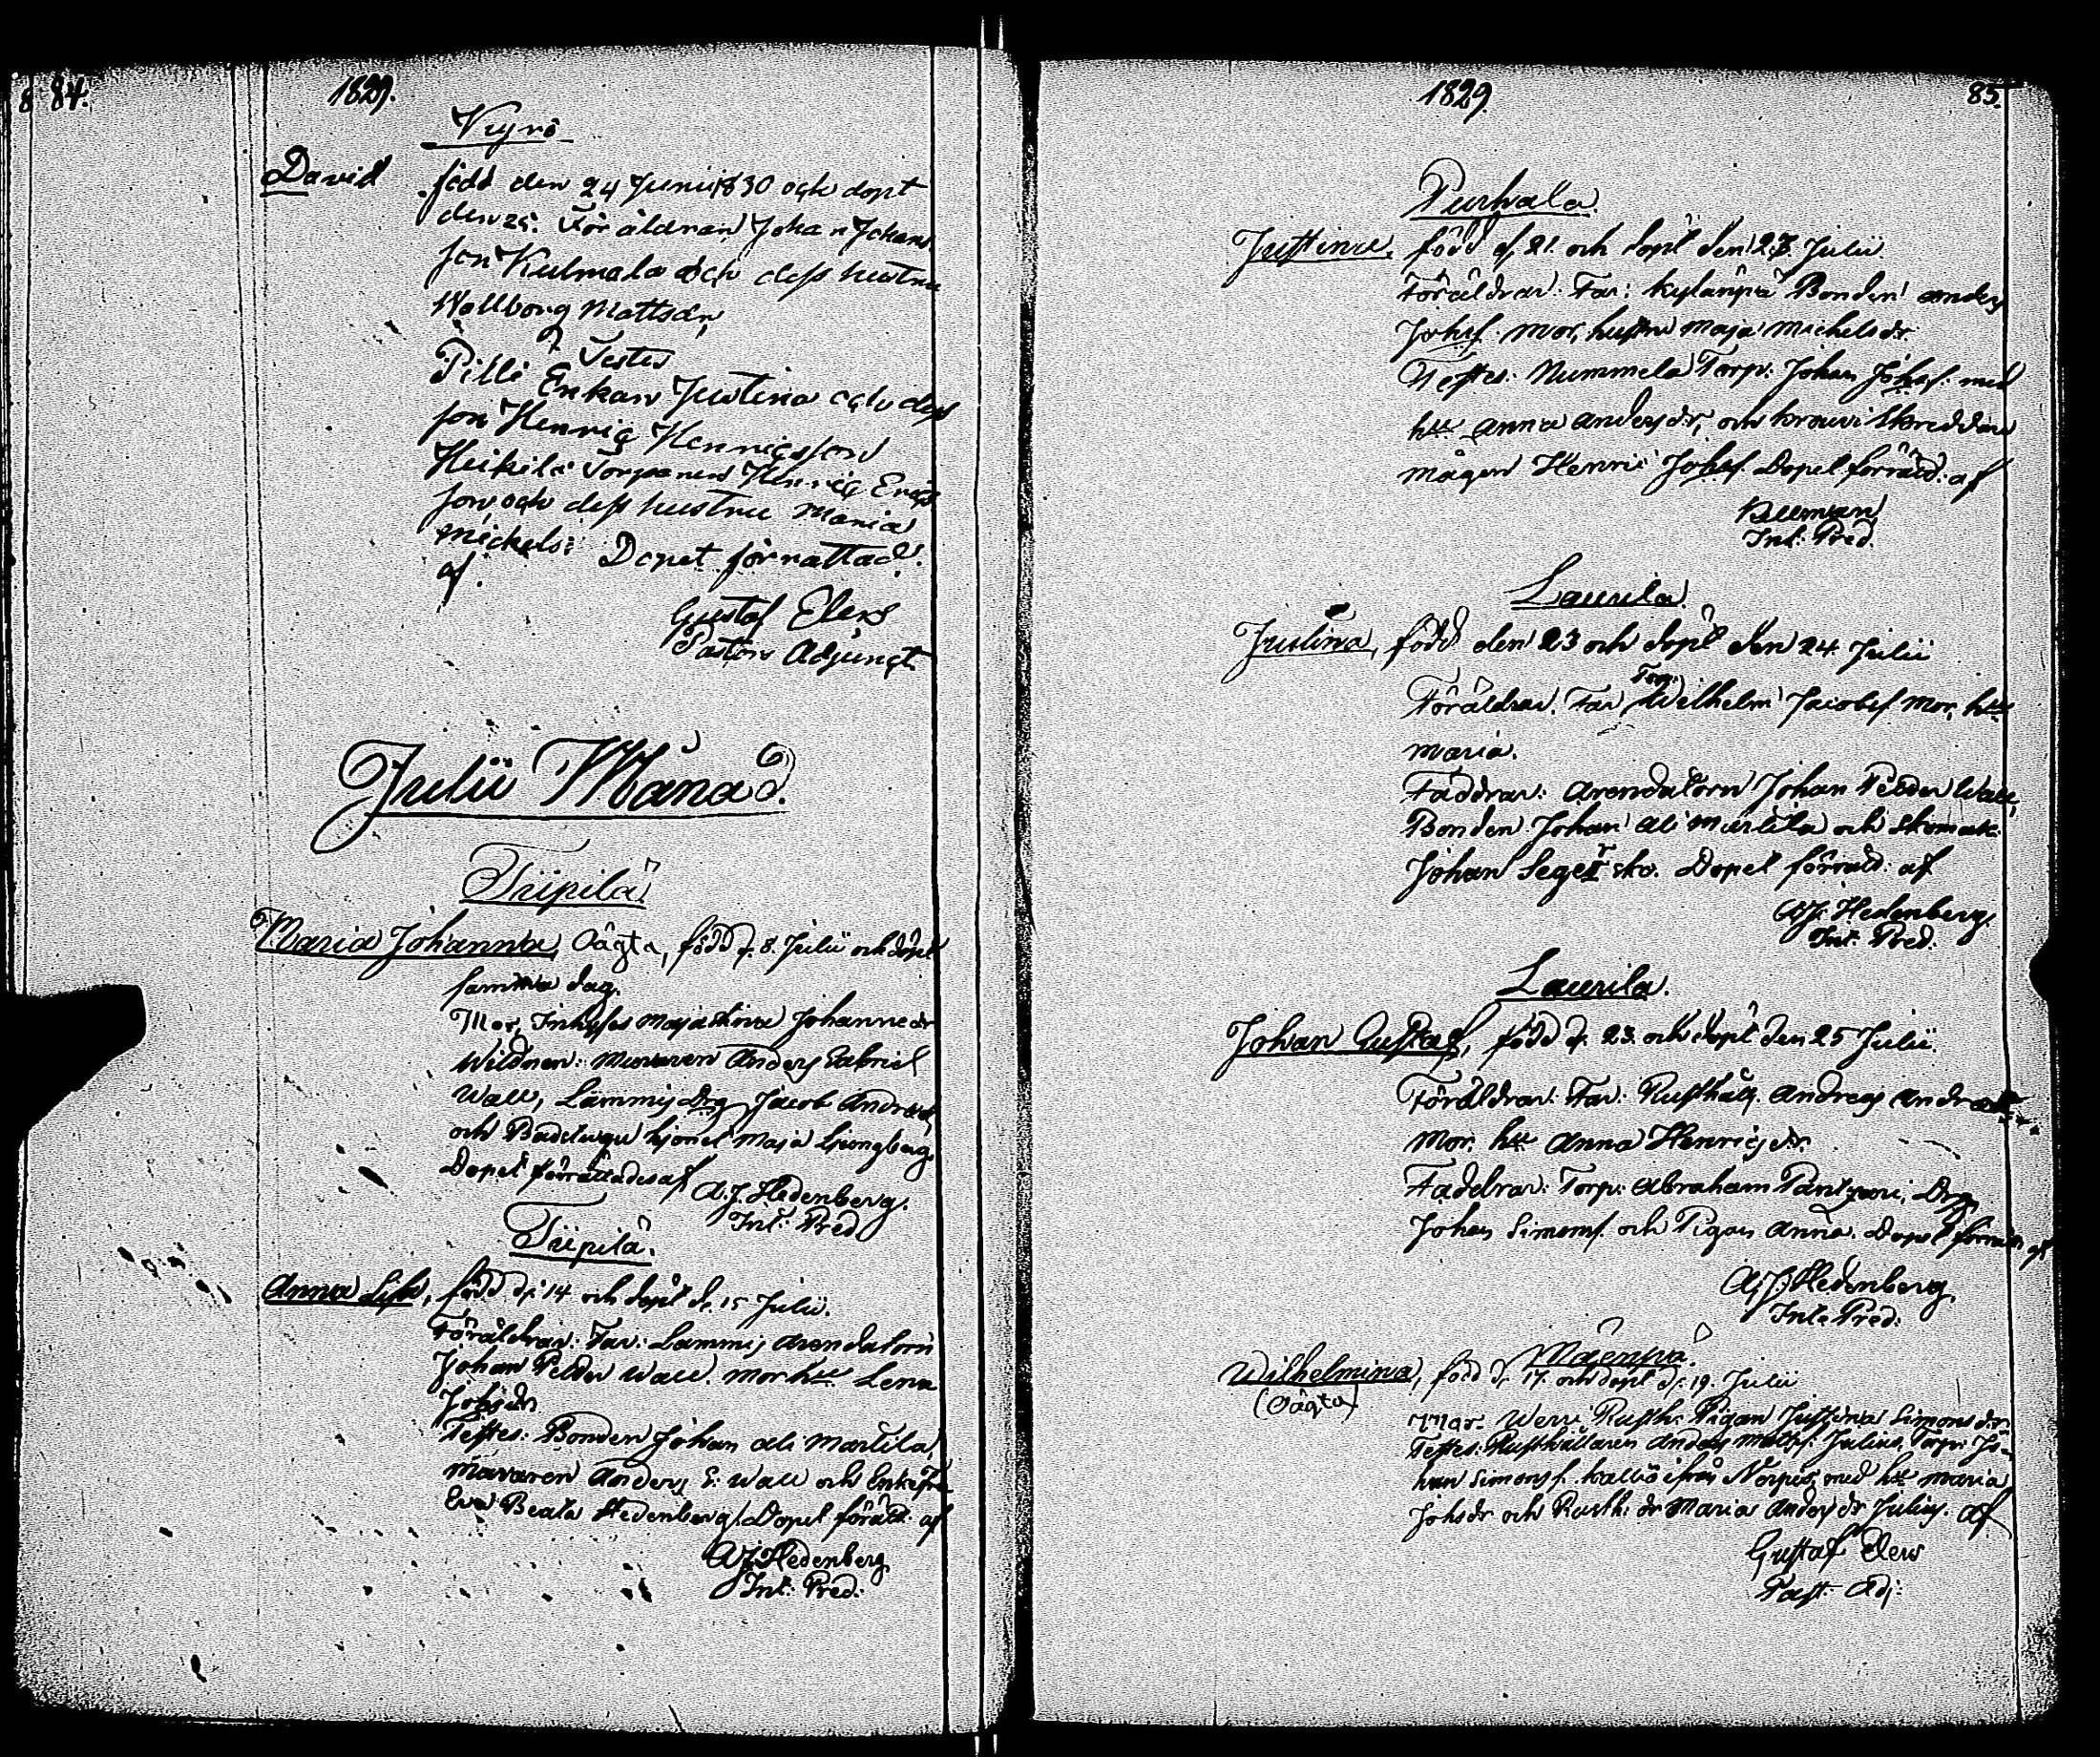 84.
1829.
Kyrö
David född den 24 Junii 1830 och döpt
den 25. Föräldrar Johan Johans
son Kulmala och dess hustru
Wallborg Mattsdr,
Testes
Pilli Enkan Justina och dess
son Henric Henricsson
Heikilä Torparen Henric Erics
son, och dess hustru Maria
Mickels: Dopet förrättad:
af.
Gustaf Elers
Pastors Adjunct
Julii Månad.
Tripilä
Maria Johanna, Oägta, född d. 8. Julii och döpt
samma dag.
Mor, Inhyses Majastina Johannedr
Wittnen: Muraren Anders Gabriel
Wall, Lammis Drg Jacob Andersss
och Maja Ljungberg.
Dopet förrättades af A. J. Hedenberg.
Int: Pred
Tripilä.
Anna Lisa, född d. 14 och döpt d. 15 Julii.
Föräldrar: Far: Lammis Arendatorn
Johan Peder Wall. Mor hu Lena
Johsdr
Testes: Bonden Johan Ali Marttila,
Muraren Anders G: Wall och Enkefru
Eva Beata Hedenberg. Dopet förätt: af
A J Hedenberg
Int: Pred:
1829.
85.
Purhala.
Justina, född d. 21. och döpt den 23. Julii.
Föräldrar: Far: Bonden Anders
Johsf. Mor, hustru Maja Michelsdr.
Testes: Nummela Torp: Johan Johsf: med
hu Anna Andersdr, och Krouvi Skreddare
mågen Henric Johsf. Dopet förrätd: af
Int: Pred.
Laurila.
Justina, född den 23 och döpt den 24 Julii
Föräldrar. Far Torp: Wilhelm Jacobsf Mor, hu
Maria.
Faddrar: Arendatorn Johan Peder Wall,
Bonden Johan Ali Marttila och Skomak:
Johan sko. Dopet förrätd: af
A J. Hedenberg.
Int: Pred.
Laurila.
Johan Gustaf, född d. 23. och döpt den 25 Julii.
Föräldrar: Far: Rusth: Andreas
Mor. hu Anna Henricsdr.
Faddrar: Torp: Abraham Drg
Johan Simonsf. och Pigan Anna. Dopet förrätt af
A. J. Hedenberg,
Int: Pred:
Mäenpä.
Wilhelmina, född d. 17. och döpt d. 19. Julii
(Oägta)
Mor. Rusth: Pigan Justina Simonsdr.
Testes: Rusthållaren Anders Matsf: Julius, Torp: Jo-
han Simonsf. Kallio ifrån med hu Maria
Johsdr och Rusth: dr Maria Andersdr Julius. af
Gustaf Elers
Past: Adj: